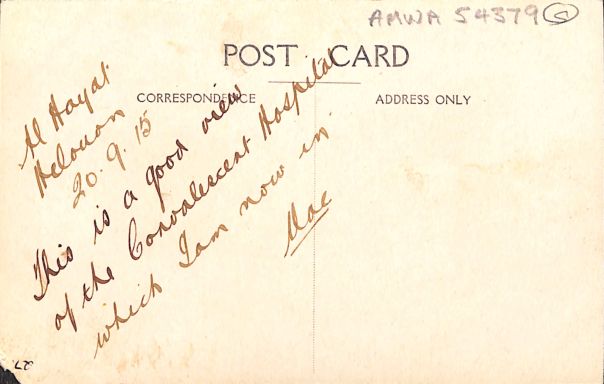 AMWA 54379 G
POST CARD
CORRESPONDENCE
ADDRESS ONLY
Al Hayat
Helouan
20.9.15
This is a good view
of the Convalescent Hospital
which I am now in.
Mac